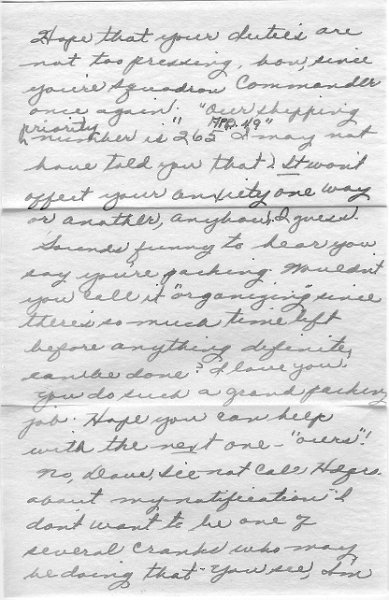 Hope that your duties are
not too pressing, hon, since
you're Squadron Commander
once again. "Our shipping
priority
number is 265" I may not
have told you that? It won't
affect your anxiety one way
or another, anyhow, I guess.
Sounds funny to hear you
say you're packing. Wouldn't
you call it "organizing" since
there's so much time left
before anything definite
can be done? I love you.
You do such a grand packing
job. Hope you can help
with the next one - "ours"!
No, Dave, I'll not call Hdqrs.
about my notification. I
don't want to be one of
several cranks who may
be doing that - You see, I'm